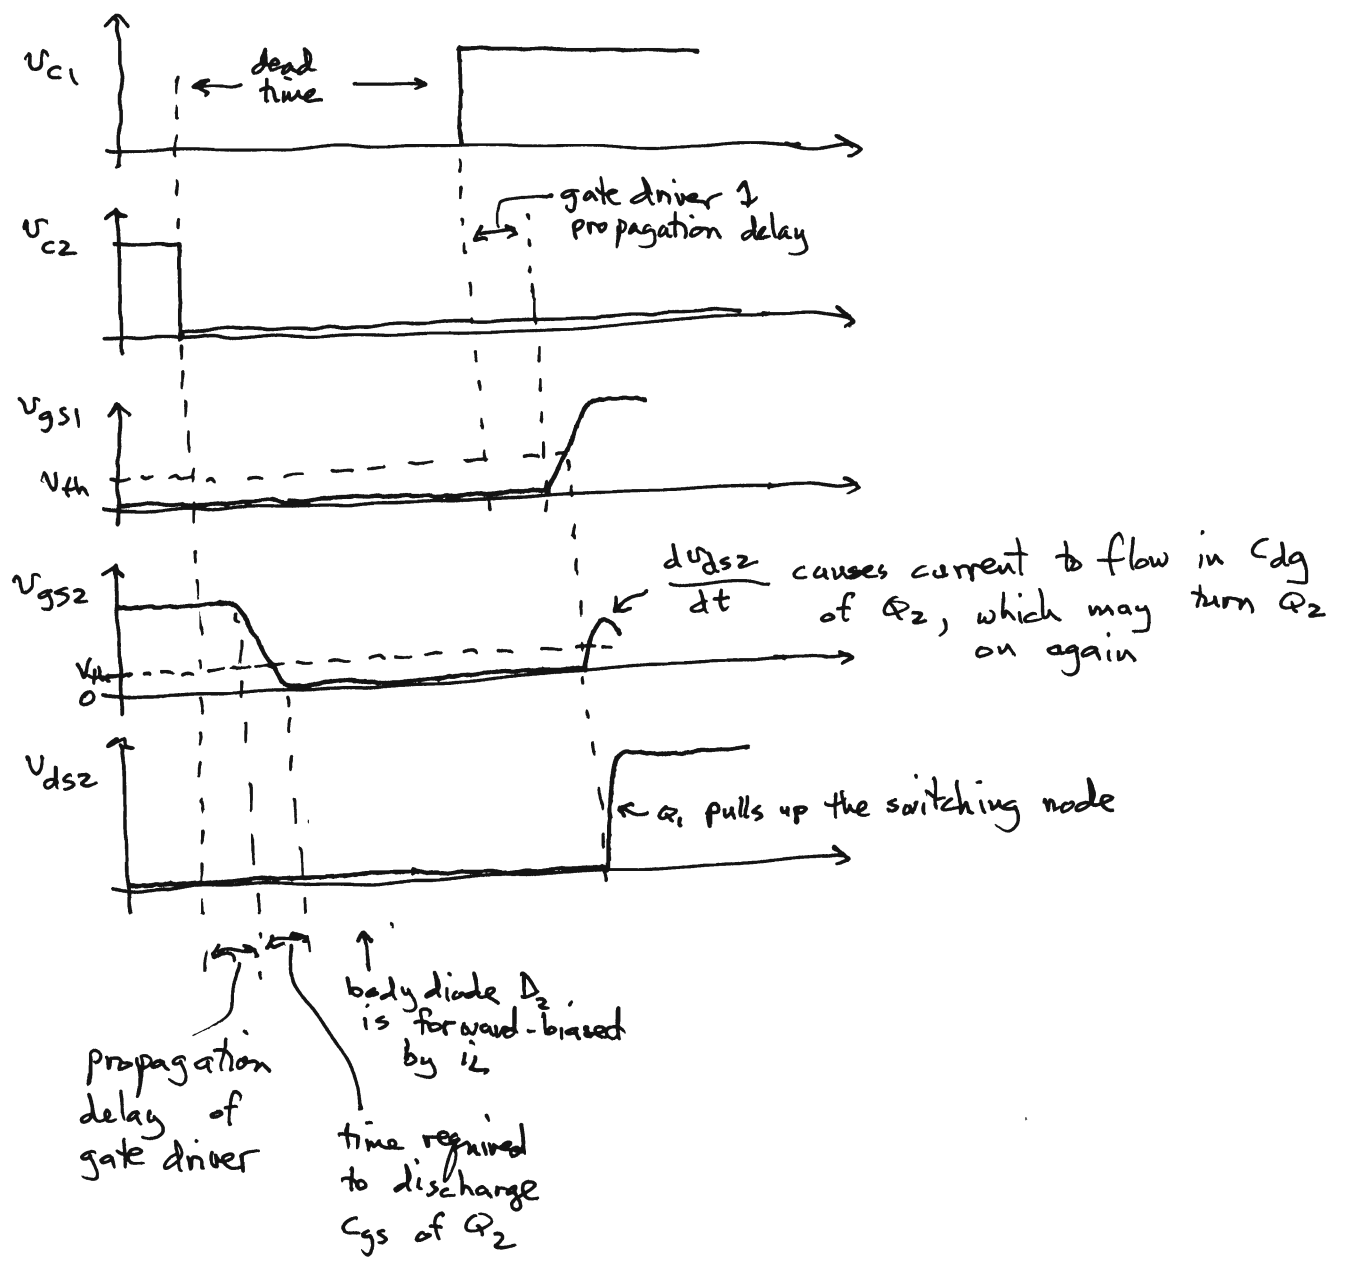 vc1
dead
time
vc2
gate driver 1
propagation delay
vgs1
vth
vgs2
vth
0
dvds2
dt
causes current to flow in Cdg
of Q2, which may turn Q2
on again
vds2
Q1 pulls up the switching node
body diode D2
is forward-biased
by iL
propagation
delay of
gate driver
time required
to discharge
Cgs of Q2